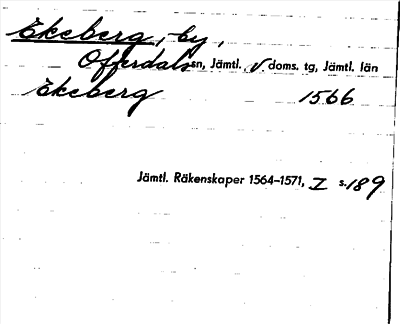 Ekeberg, by,
Offerdals sn, Jämtl. v. doms. tg, Jämtl. län
Ekeberg 1566
Jämtl. Räkenskaper 1564–1571, I s. 189